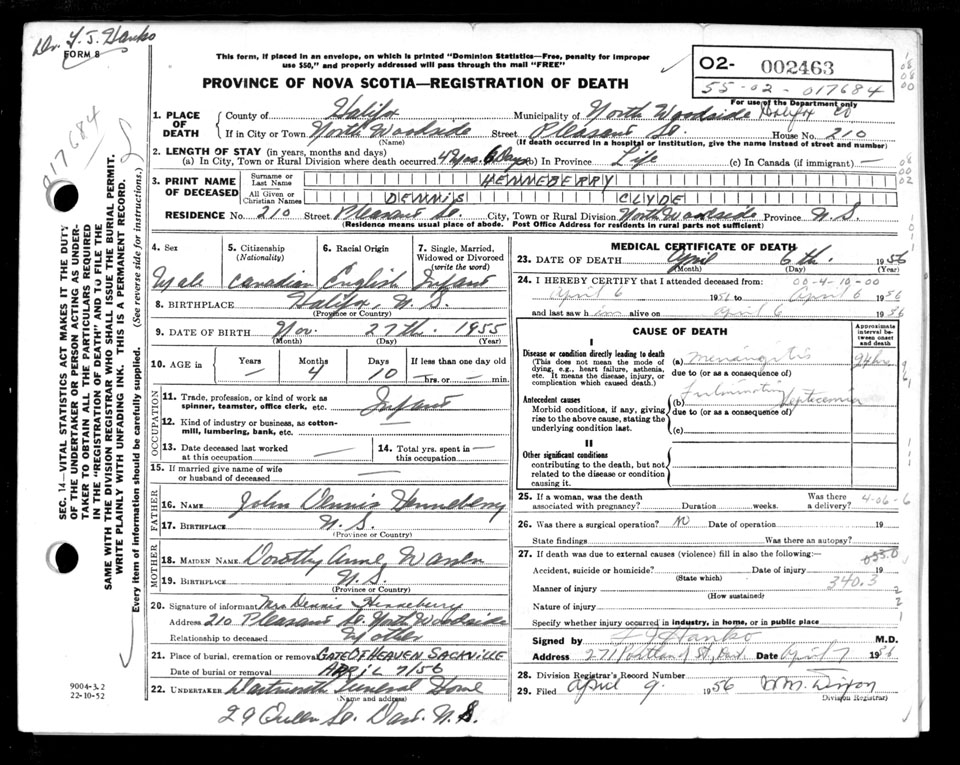 Dr. F. J. Hanko
FORM 8
This form, if placed in an envelope, on which is printed "Dominion Statistics—Free, penalty for improper
use $50," and properly addressed will pass through the mail "FREE"
PROVINCE OF NOVA SCOTIA—REGISTRATION OF DEATH
02- 002463
55-02-017684
For use of the Department only
017684
1. PLACE OF DEATH
County of Halifax Municipality of North Woodside Halifax Co
If in City or Town North Woodside Street Pleasant St. House No. 210
(Name) (If death occurred in a hospital or institution, give the name instead of street and number)
2. LENGTH OF STAY (in years, months and days)
(a) In City, Town or Rural Division where death occurred 4 Mos. 6 Days (b) In Province Life (c) In Canada (if immigrant) —
3. PRINT NAME OF DECEASED
Surname or Last Name HENNEBERRY
All Given or Christian Names DENNIS CLYDE
RESIDENCE No. 210 Street Pleasant St. City, Town or Rural Division North Woodside Province N.S.
(Residence means usual place of abode. Post Office Address for residents in rural parts not sufficient)
4. Sex Male
5. Citizenship (Nationality) Canadian
6. Racial Origin English
7. Single, Married, Widowed or Divorced (write the word) Infant
8. BIRTHPLACE Halifax, N.S.
(Province or Country)
9. DATE OF BIRTH Nov. 27th. 1955
(Month) (Day) (Year)
10. AGE in Years — Months 4 Days 10 If less than one day old
— hrs. or — min.
OCCUPATION
11. Trade, profession, or kind of work as spinner, teamster, office clerk, etc. Infant
12. Kind of industry or business, as cotton-mill, lumbering, bank, etc. —
13. Date deceased last worked at this occupation —
14. Total yrs. spent in this occupation —
15. If married give name of wife or husband of deceased —
FATHER
16. NAME John Dennis Henneberry
17. BIRTHPLACE N.S.
(Province or Country)
MOTHER
18. MAIDEN NAME Dorothy Anne
19. BIRTHPLACE N.S.
(Province or Country)
20. Signature of informant Mrs Dennis Henneberry
Address 210 Pleasant St. North Woodside
Relationship to deceased Mother
21. Place of burial, cremation or removal GATE OF HEAVEN SACKVILLE
Date of burial or removal APRIL 7/56
22. UNDERTAKER Dartmouth Funeral Home
(Name and address)
29 Queen St. Dart. N.S.
MEDICAL CERTIFICATE OF DEATH
23. DATE OF DEATH April 6th. 1956
(Month) (Day) (Year)
00-4-10-00
24. I HEREBY CERTIFY that I attended deceased from
April 6 1956 to April 6 1956
and last saw him alive on April 6 1956
CAUSE OF DEATH
Approximate interval between onset and death
I
Disease or condition directly leading to death
(This does not mean the mode of dying, e.g., heart failure, asthenia, etc. It means the disease, injury, or complication which caused death.)
(a) Meningitis
due to (or as a consequence of)
Antecedent causes
Morbid conditions, if any, giving rise to the above cause, stating the underlying condition last.
(b) Fulminating Septicemia
due to (or as a consequence of)
(c)
II
Other significant conditions
contributing to the death, but not related to the disease or condition causing it.
25. If a woman, was the death associated with pregnancy? Duration weeks. Was there a delivery?
4-06-6
26. Was there a surgical operation? No Date of operation 19
State findings Was there an autopsy?
27. If death was due to external causes (violence) fill in also the following:—
Accident, suicide or homicide? Date of injury 19
(State which)
053.0
340.3
Manner of injury
(How sustained)
Nature of injury
Specify whether injury occurred in industry, in home, or in public place
Signed by F J Hanko M.D.
Address 271 Portland St., Dart. Date April 7 1956
28. Division Registrar's Record Number
29. Filed April 9. 1956 Wm. Dixon
Division Registrar)
SEC. 14—VITAL STATISTICS ACT MAKES IT THE DUTY
OF THE UNDERTAKER OR PERSON ACTING AS UNDER-
TAKER TO OBTAIN ALL THE PARTICULARS REQUIRED
IN THE "REGISTRATION OF DEATH" AND TO FILE THE
SAME WITH THE DIVISION REGISTRAR WHO SHALL ISSUE THE BURIAL PERMIT.
WRITE PLAINLY WITH UNFADING INK. THIS IS A PERMANENT RECORD.
Every item of information should be carefully supplied. (See reverse side for instructions.)
9004-3.2
22-10-52